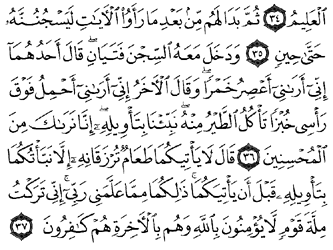 ٱلْعَلِيمُ ٣٤ ثُمَّ بَدَا لَهُم مِّنۢ بَعْدِ مَا رَأَوُا۟ ٱلْءَايَٰتِ لَيَسْجُنُنَّهُۥ
حَتَّىٰ حِينٍ ٣٥ وَدَخَلَ مَعَهُ ٱلسِّجْنَ فَتَيَانِ ۖ قَالَ أَحَدُهُمَآ
إِنِّىٓ أَرَىٰنِىٓ أَعْصِرُ خَمْرًا ۖ وَقَالَ ٱلْءَاخَرُ إِنِّىٓ أَرَىٰنِىٓ أَحْمِلُ فَوْقَ
رَأْسِى خُبْزًا تَأْكُلُ ٱلطَّيْرُ مِنْهُ ۖ نَبِّئْنَا بِتَأْوِيلِهِۦٓ ۖ إِنَّا نَرَىٰكَ مِنَ
ٱلْمُحْسِنِينَ ٣٦ قَالَ لَا يَأْتِيكُمَا طَعَامٌ تُرْزَقَانِهِۦٓ إِلَّا نَبَّأْتُكُمَا
بِتَأْوِيلِهِۦ قَبْلَ أَن يَأْتِيَكُمَا ۚ ذَٰلِكُمَا مِمَّا عَلَّمَنِى رَبِّىٓ ۚ إِنِّى تَرَكْتُ
مِلَّةَ قَوْمٍ لَّا يُؤْمِنُونَ بِٱللَّهِ وَهُم بِٱلْءَاخِرَةِ هُمْ كَٰفِرُونَ ٣٧